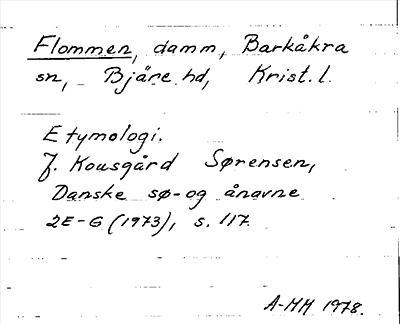 Flommen, damm, Barkåkra
sn, Bjäre hd, Krist. l.
Etymologi.
J. Kousgård Sørensen,
Danske sø- og ånavne
2E-G (1973), s. 117.
A-MH 1978.